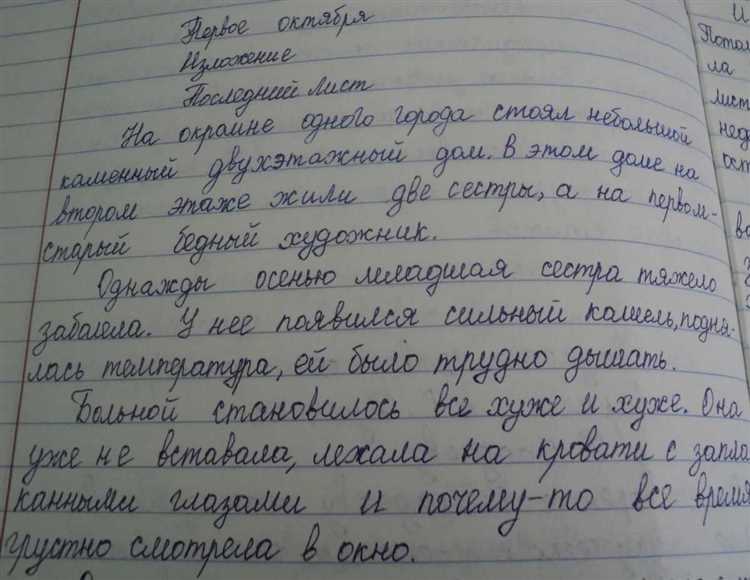 Первое октября
Изложение
Последний лист
На окраине одного города стоял небольшой
каменный двухэтажный дом. В этом доме на
втором этаже жили две сестры, а на первом-
старый бедный художник.
Однажды осенью младшая сестра тяжело
заболела. У нее появился сильный кашель, подня-
лась температура, ей было трудно дышать.
Больной становилось все хуже и хуже. Она
уже не вставала, лежала на кровати с запла
канными глазами и почему-то все время
грустно смотрела в окно.
И
Потом
ла
лист
нед
ост